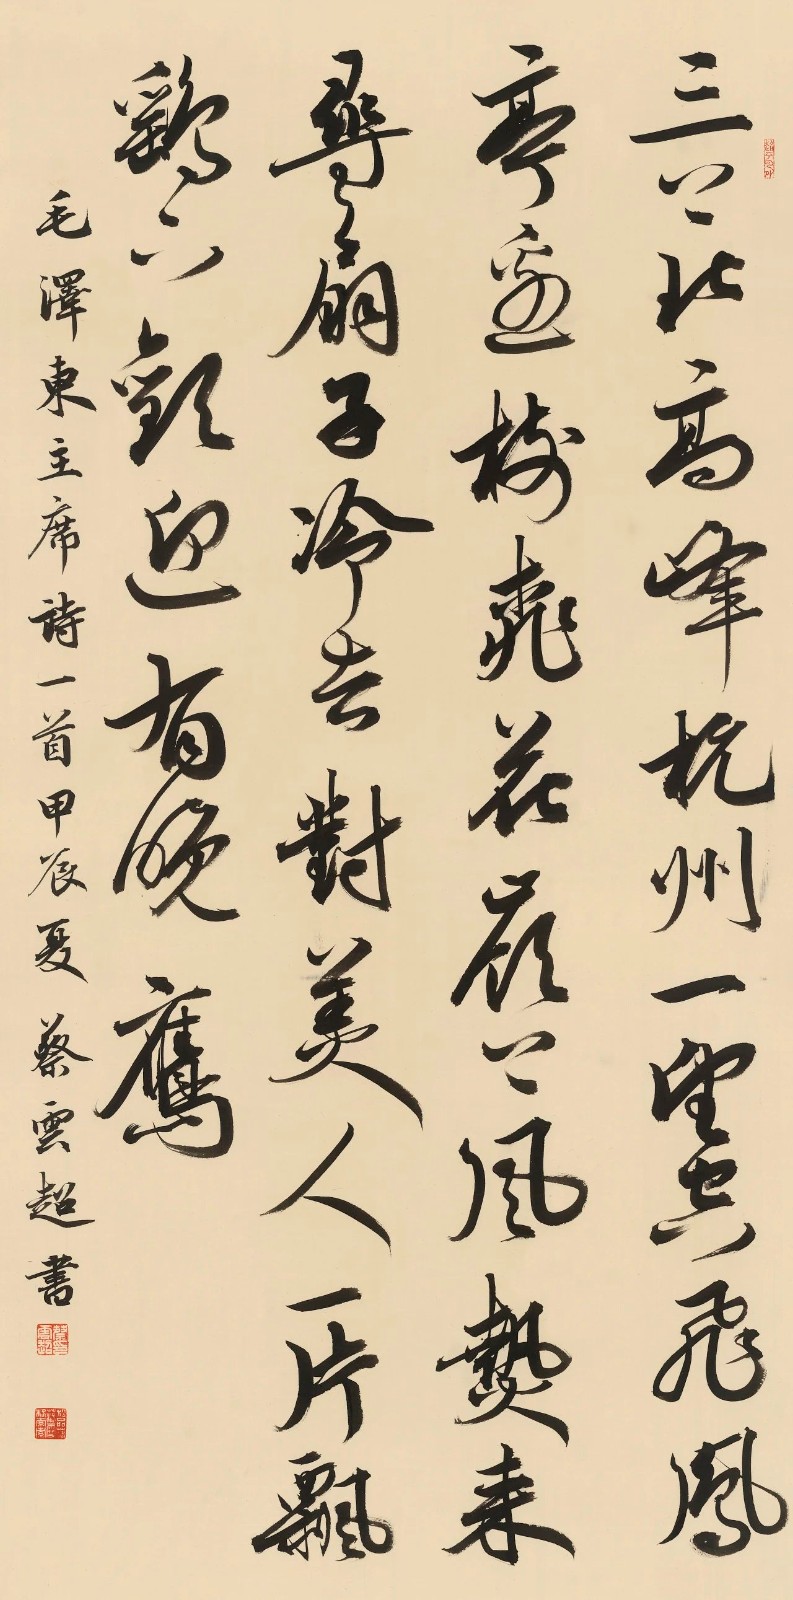 三上北高峯杭州一望空飛鳳
亭邊樹桃花嶺上風熱来
尋扇子冷去對美人一片飄
颻下歡迎有晚鷹
毛澤東主席詩一首甲辰夏蔡雲超書